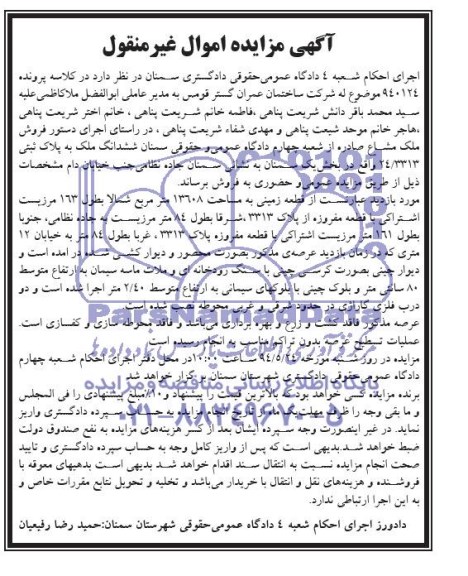 آگهی مزایده اموال غیرمنقول
اجرای احکام شعبه ۴ دادگاه عمومی‌حقوقی دادگستری سمنان در نظر دارد در کلاسه پرونده
۹۴۰۱۲۴ موضوع له شرکت ساختمان عمران گستر قومس به مدیر عاملی ابوالفضل ملاکاظمی‌علیه
سید محمد باقر دانش شریعت پناهی ،فاطمه خانم شریعت پناهی ، خانم اختر شریعت پناهی
،هاجر خانم موحد شیعت پناهی و مهدی شفاء شریعت پناهی ، در راستای اجرای دستور فروش
ملک مشاع صادره از شعبه چهارم دادگاه عمومی‌و حقوقی سمنان ششدانگ ملک به پلاک ثبتی
۲۴/۳۳۱۳ واقع در بخش یک سمنان به نشانی سمنان جاده نظامی‌جنب خیابان دام مشخصات
ذیل از طریق مزایده عمومی‌و حضوری به فروش برساند.
مورد بازدید عبارتست از قطعه زمینی به مساحت ۱۳۶۰۸ متر مربع شمالا بطول ۱۶۳ مرزیست
اشتراکی با قطعه مفروزه از پلاک ۳۳۱۳ ،شرقا بطول ۸۴ متر مرزیست به جاده نظامی، جنوبا
بطول ۱۶۱ متر مرزیست اشتراکی با قطعه مفروزه پلاک ۳۳۱۳ ، غربا بطول ۸۴ متر به خیابان ۱۲
متری که در زمان بازدید عرصه‌ی مذکور بصورت محصور و دیوار کشی شده در امده است و
دیوار چینی بصورت کرسی چینی با سنگ رودخانه ای و ملات ماسه سیمان به ارتفاع متوسط
۸۰ سانتی متر و بلوک چینی با بلوکهای سیمانی به ارتفاع متوسط ۲/۴۰ متر اجرا شده است و دو
درب فلزی گاراژی در حدود شرقی و غربی محوطه نصب شده است.
عرصه مذکور فاقد کشت و زرع و بهره برداری می‌باشد و فاقد محوطه سازی و کفسازی است.
عملیات تسطیح عرصه بدون تراکم مناسب به انجام رسیده است
مزایده در روز شنبه مورخه ۹۴/۵/۲۴ ساعت ۱۰:۰۰ در محل دفتر اجرای احکام شعبه چهارم
دادگاه عمومی‌حقوقی دادگستری شهرستان سمنان برگزار خواهد شد
برنده مزایده کسی خواهد بود که بالاترین قیمت را پیشنهاد و ۱۰٪مبلغ پیشنهادی را فی المجلس
و ما بقی وجه را ظرف مهلت یک ماه از تاریخ انجام مزایده به حساب سپرده دادگستری واریز
نماید. در غیر اینصورت وجه سپرده ایشان بعد از کسر هزینه‌های مزایده به نفع صندوق دولت
ضبط خواهد شد.بدیهی است که پس از واریز کامل وجه به حساب سپرده دادگستری و تایید
صحت انجام مزایده نسبت به انتقال سند اقدام خواهد شد بدیهی است بدهیهای معوقه با
فروشنده و هزینه‌های نقل و انتقال با خریدار می‌باشد و تخلیه و تحویل تابع مقررات خاص و
به این اجرا ارتباطی ندارد.
دادورز اجرای احکام شعبه ۴ دادگاه عمومی‌حقوقی شهرستان سمنان:حمید رضا رفیعیان
ParsNamadData
پایگاه اطلاع رسانی مناقصه و مزایده
۰۲۱-۸۸۳۴۹۶۷۰-۵